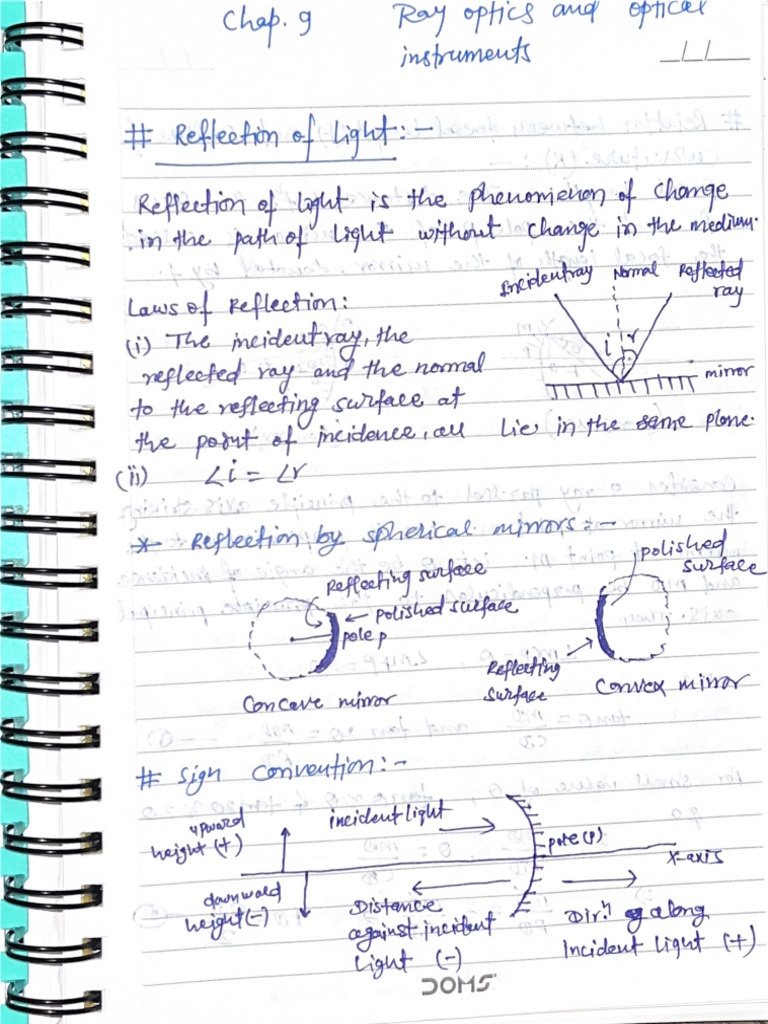 Chap. 9 Ray optics and optical
instruments
# Reflection of Light :-
Reflection of light is the phenomenon of change
in the path of light without change in the medium.
Laws of Reflection:
Incident ray Normal Reflected
ray
(i) The incident ray, the
reflected ray and the normal
i r
mirror
to the reflecting surface at
the point of incidence, all lie in the same plane.
(ii) ∠i = ∠r
* Reflection by spherical mirrors :-
Reflecting surface
polished surface
pole p
Concave mirror
polished
surface
Reflecting
surface
Convex mirror
# Sign Convention :-
upward
height (+)
incident light
pole (p)
X-axis
downward
height (-)
Distance
against incident
light (-)
Dirⁿ along
Incident Light (+)
DOMS